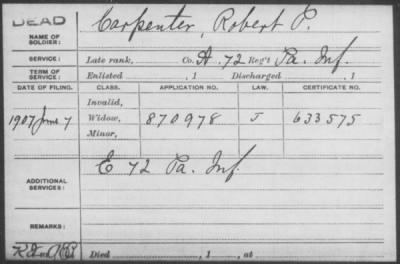 DEAD
NAME OF SOLDIER: Carpenter, Robert P.
SERVICE: Late rank, Co. A. 72 Reg't Pa. Inf.
TERM OF SERVICE: Enlisted , 1 Discharged , 1
DATE OF FILING. CLASS. APPLICATION NO. LAW. CERTIFICATE NO.
Invalid,
1907 June 7 Widow, 870978 J 633575
Minor,
ADDITIONAL SERVICES: E 72 Pa. Inf.
REMARKS:
Died , 1 , at